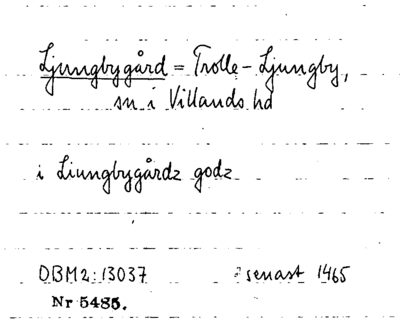 Ljungbygård = Trolle-Ljungby,
sn i Villands hd
i Liungbygårdz godz
DBM2:13037 senast 1465
Nr 5485.